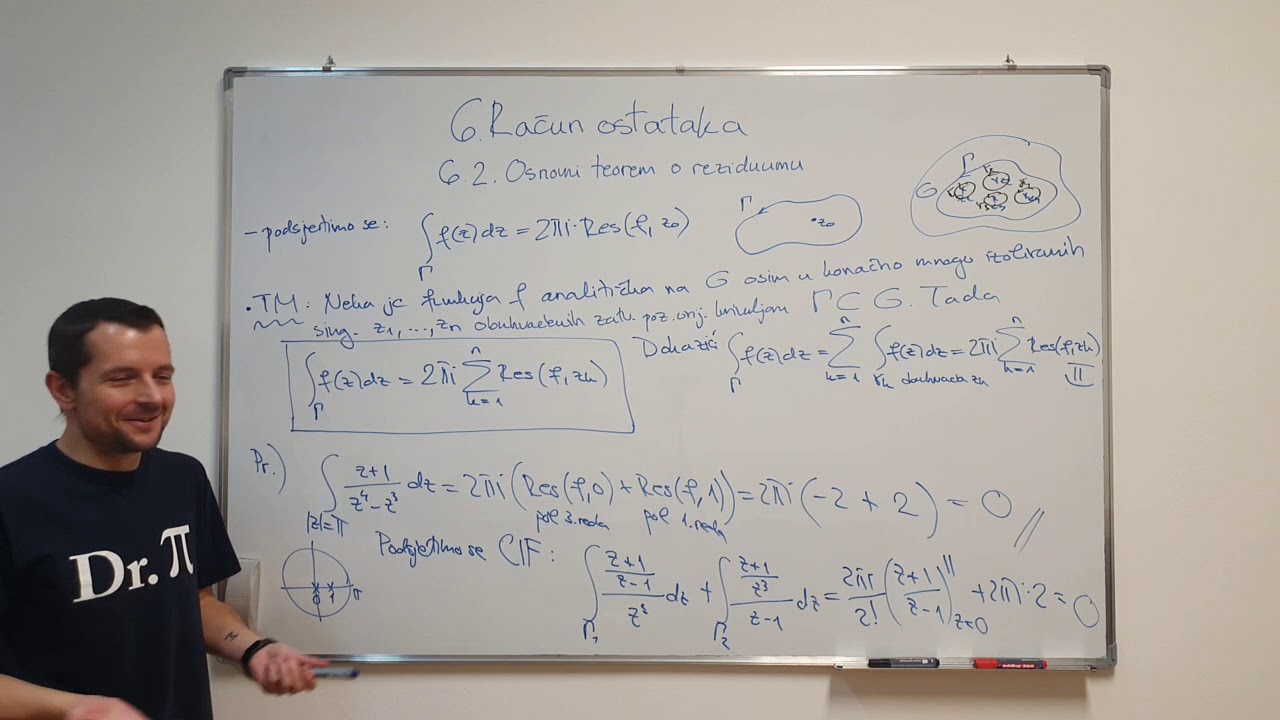 6. Račun ostataka
6.2. Osnovni teorem o reziduumu
- podsjetimo se: ∫_Γ f(z)dz = 2πi·Res(f, z₀)
Γ
·z₀
G
Γ
• TM: Neka je funkcija f analitička na G osim u konačno mnogo izoliranih
sing. z₁, ..., zₙ obuhvaćenih zatv. poz. orij. krivuljom Γ ⊂ G. Tada
∫_Γ f(z)dz = 2πi ∑_{k=1}^{n} Res(f, z_k)
Dokazić: ∫_Γ f(z)dz = ∑_{k=1}^{n} ∫_{γ_k} f(z)dz = 2πi ∑_{k=1}^{n} Res(f, z_k)
Pr.) ∫_{|z|=π} (z+1)/(z⁴-z³) dz = 2πi (Res(f,0) + Res(f,1)) = 2πi (-2 + 2) = 0 //
pol 3. reda pol 1. reda
0 1 π
Podsjetimo se CIF: ∫_{Γ₁} ((z+1)/(z-1))/z³ dz + ∫_{Γ₂} ((z+1)/z³)/(z-1) dz = 2πi/2! ((z+1)/(z-1))''_{z=0} + 2πi·2 = 0
Dr. π
edding 360